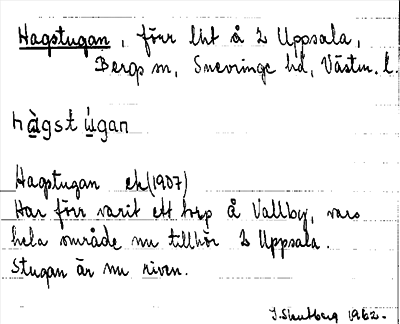 Hagstugan, förr lht å 2 Uppsala,
Bergs sn, Snevringe hd, Västm. l.
hàgstùgan
Hagstugan ek (1907)
Har förr varit ett torp å Vallby, vars
hela område nu tillhör 2 Uppsala.
Stugan är nu riven.
1962.